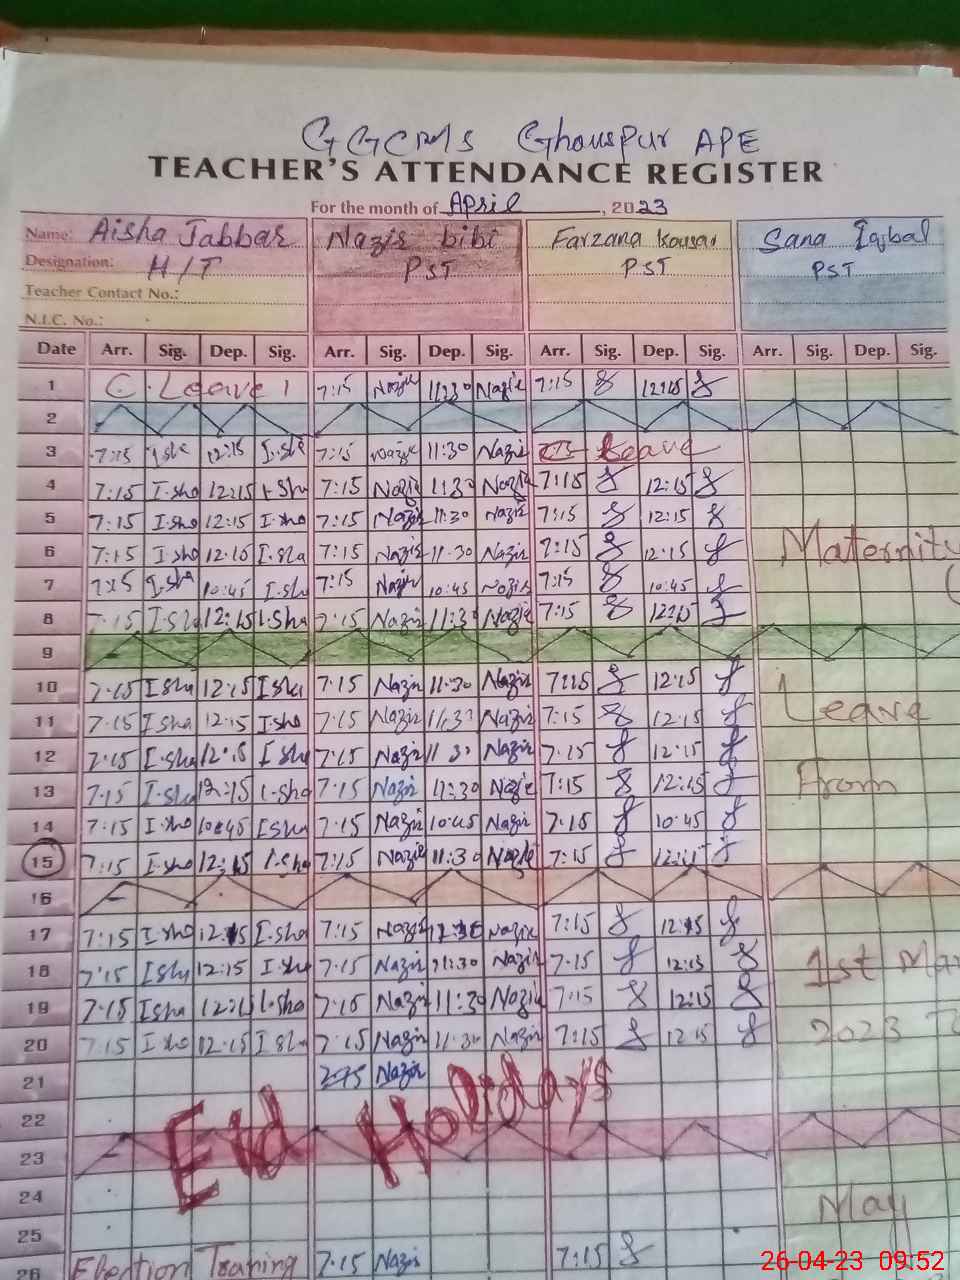 GGCMS Ghouspur APE
TEACHER'S ATTENDANCE REGISTER
For the month of April, 2023
Name: Aisha Jabbar Nazir bibi Farzana Kousar Sana Iqbal
Designation: H/T PST PST PST
Teacher Contact No.:
N.I.C. No.:
Date Arr. Sig. Dep. Sig. Arr. Sig. Dep. Sig. Arr. Sig. Dep. Sig. Arr. Sig. Dep. Sig.
1 C. Leave 1 7:15 Nazir 11:30 Nazir 7:15 12:15
2
3 7:15 Isha 12:15 I.sha 7:15 Nazir 11:30 Nazir Leave
4 7:15 I.sha 12:15 I.sha 7:15 Nazir 11:30 Nazir 7:15 12:15
5 7:15 I.sha 12:15 I.sha 7:15 Nazir 11:30 Nazir 7:15 12:15
6 7:15 I.sha 12:15 I.sha 7:15 Nazir 11:30 Nazir 7:15 12:15 Maternity
7 7:15 I.sha 10:45 I.sha 7:15 Nazir 10:45 Nazir 7:15 10:45
8 7:15 I.sha 12:15 I.sha 7:15 Nazir 11:30 Nazir 7:15 12:15
9
10 7:15 Isha 12:15 Isha 7:15 Nazir 11:30 Nazir 7:15 12:15
11 7:15 Isha 12:15 Isha 7:15 Nazir 11:30 Nazir 7:15 12:15 Leave
12 7:15 I.sha 12:15 I sha 7:15 Nazir 11:30 Nazir 7:15 12:15
13 7:15 I.sha 12:15 I.sha 7:15 Nazir 11:30 Nazir 7:15 12:15 From
14 7:15 I.sha 10:45 Isha 7:15 Nazir 10:45 Nazir 7:15 10:45
15 7:15 I.sha 12:15 I.sha 7:15 Nazir 11:30 Nazir 7:15 12:15
16
17 7:15 I.sha 12:15 I.sha 7:15 Nazir 11:30 Nazir 7:15 12:15
18 7:15 Isha 12:15 I.sha 7:15 Nazir 11:30 Nazir 7:15 12:15 1st Mar
19 7:15 Isha 12:15 I.sha 7:15 Nazir 11:30 Nazir 7:15 12:15
20 7:15 I.sha 12:15 Isha 7:15 Nazir 11:30 Nazir 7:15 12:15 2023
21 7:15 Nazir
Eid Holidays
22
23
24 May
25
26 Election Training 7:15 Nazir 7:15
26-04-23 09:52